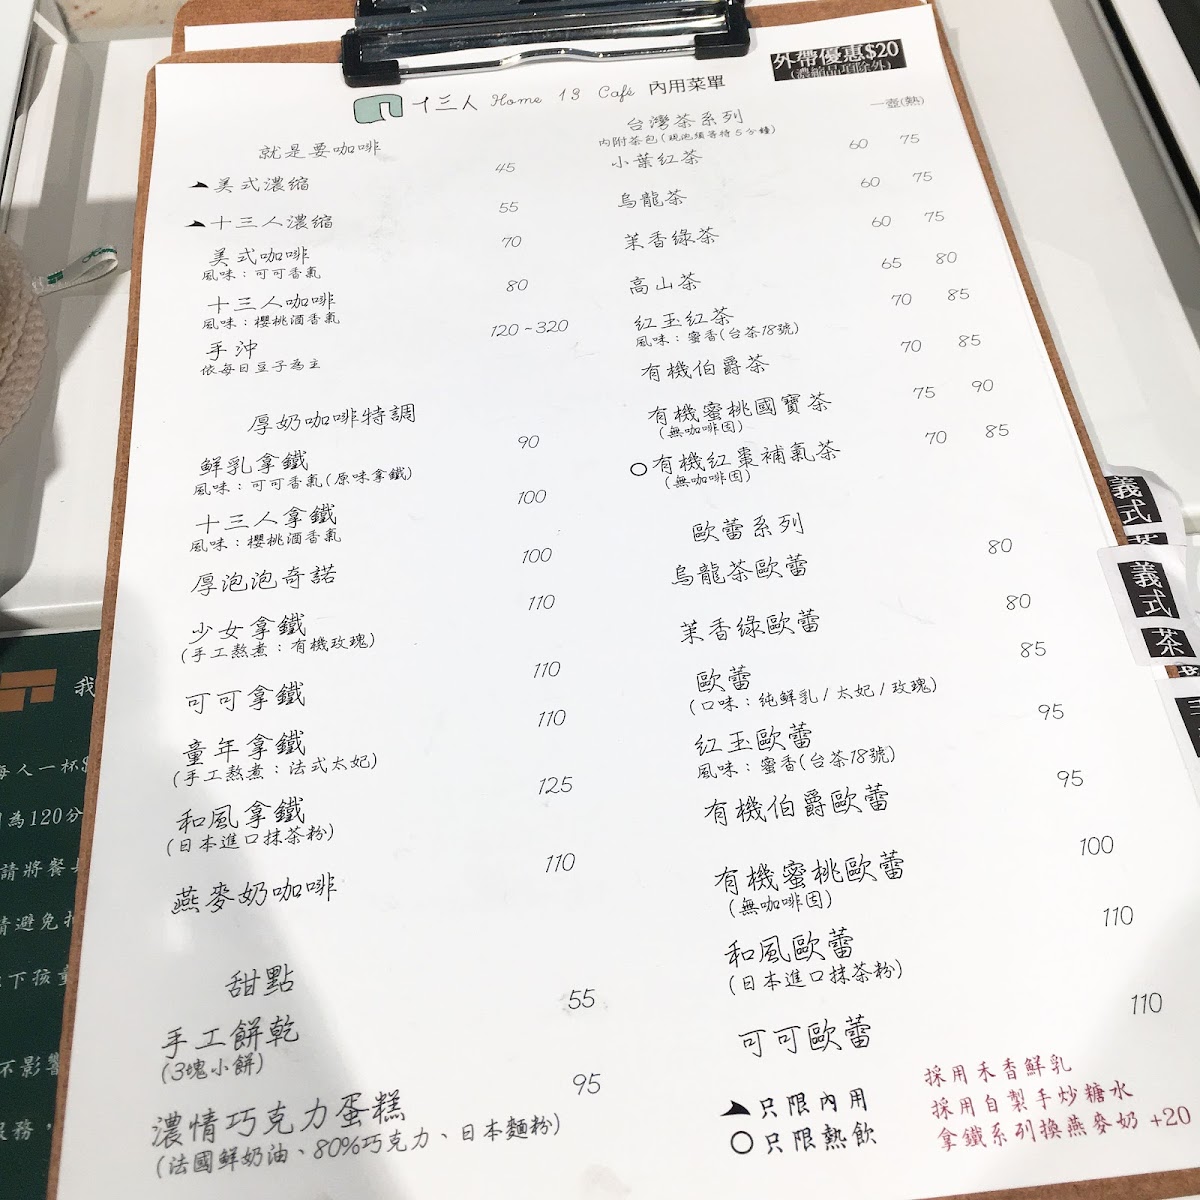 外帶優惠$20
(濃縮品項除外)
十三人 Home 13 Café 內用菜單
就是要咖啡
美式濃縮 45
十三人濃縮 55
美式咖啡 70
風味：可可香氣
十三人咖啡 80
風味：櫻桃酒香氣
手沖 120~320
依每日豆子為主
厚奶咖啡特調
鮮乳拿鐵 90
風味：可可香氣(原味拿鐵)
十三人拿鐵 100
風味：櫻桃酒香氣
厚泡泡奇諾 100
少女拿鐵 110
(手工熬煮：有機玫瑰)
可可拿鐵 110
童年拿鐵 110
(手工熬煮：法式太妃)
和風拿鐵 125
(日本進口抹茶粉)
燕麥奶咖啡 110
甜點
手工餅乾 55
(3塊小餅)
濃情巧克力蛋糕 95
(法國鮮奶油、80%巧克力、日本麵粉)
台灣茶系列 一壺(熱)
內附茶包(現泡須等待5分鐘)
小葉紅茶 60 75
烏龍茶 60 75
茉香綠茶 60 75
高山茶 65 80
紅玉紅茶 70 85
風味：蜜香(台茶18號)
有機伯爵茶 70 85
有機蜜桃國寶茶 75 90
(無咖啡因)
○有機紅棗補氣茶 70 85
(無咖啡因)
歐蕾系列
烏龍茶歐蕾 80
茉香綠歐蕾 80
歐蕾 85
(口味：純鮮乳/太妃/玫瑰)
紅玉歐蕾 95
風味：蜜香(台茶18號)
有機伯爵歐蕾 95
有機蜜桃歐蕾 100
(無咖啡因)
和風歐蕾 110
(日本進口抹茶粉)
可可歐蕾 110
只限內用
○只限熱飲
採用禾香鮮乳
採用自製手炒糖水
拿鐵系列換燕麥奶 +20
義式
義式
茶
我
每人一杯
為120分
請將餐
請避免
下孩童
不影響
服務，